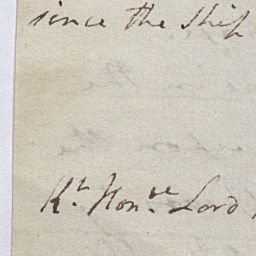 since the ship
Rt. Honble. Lord